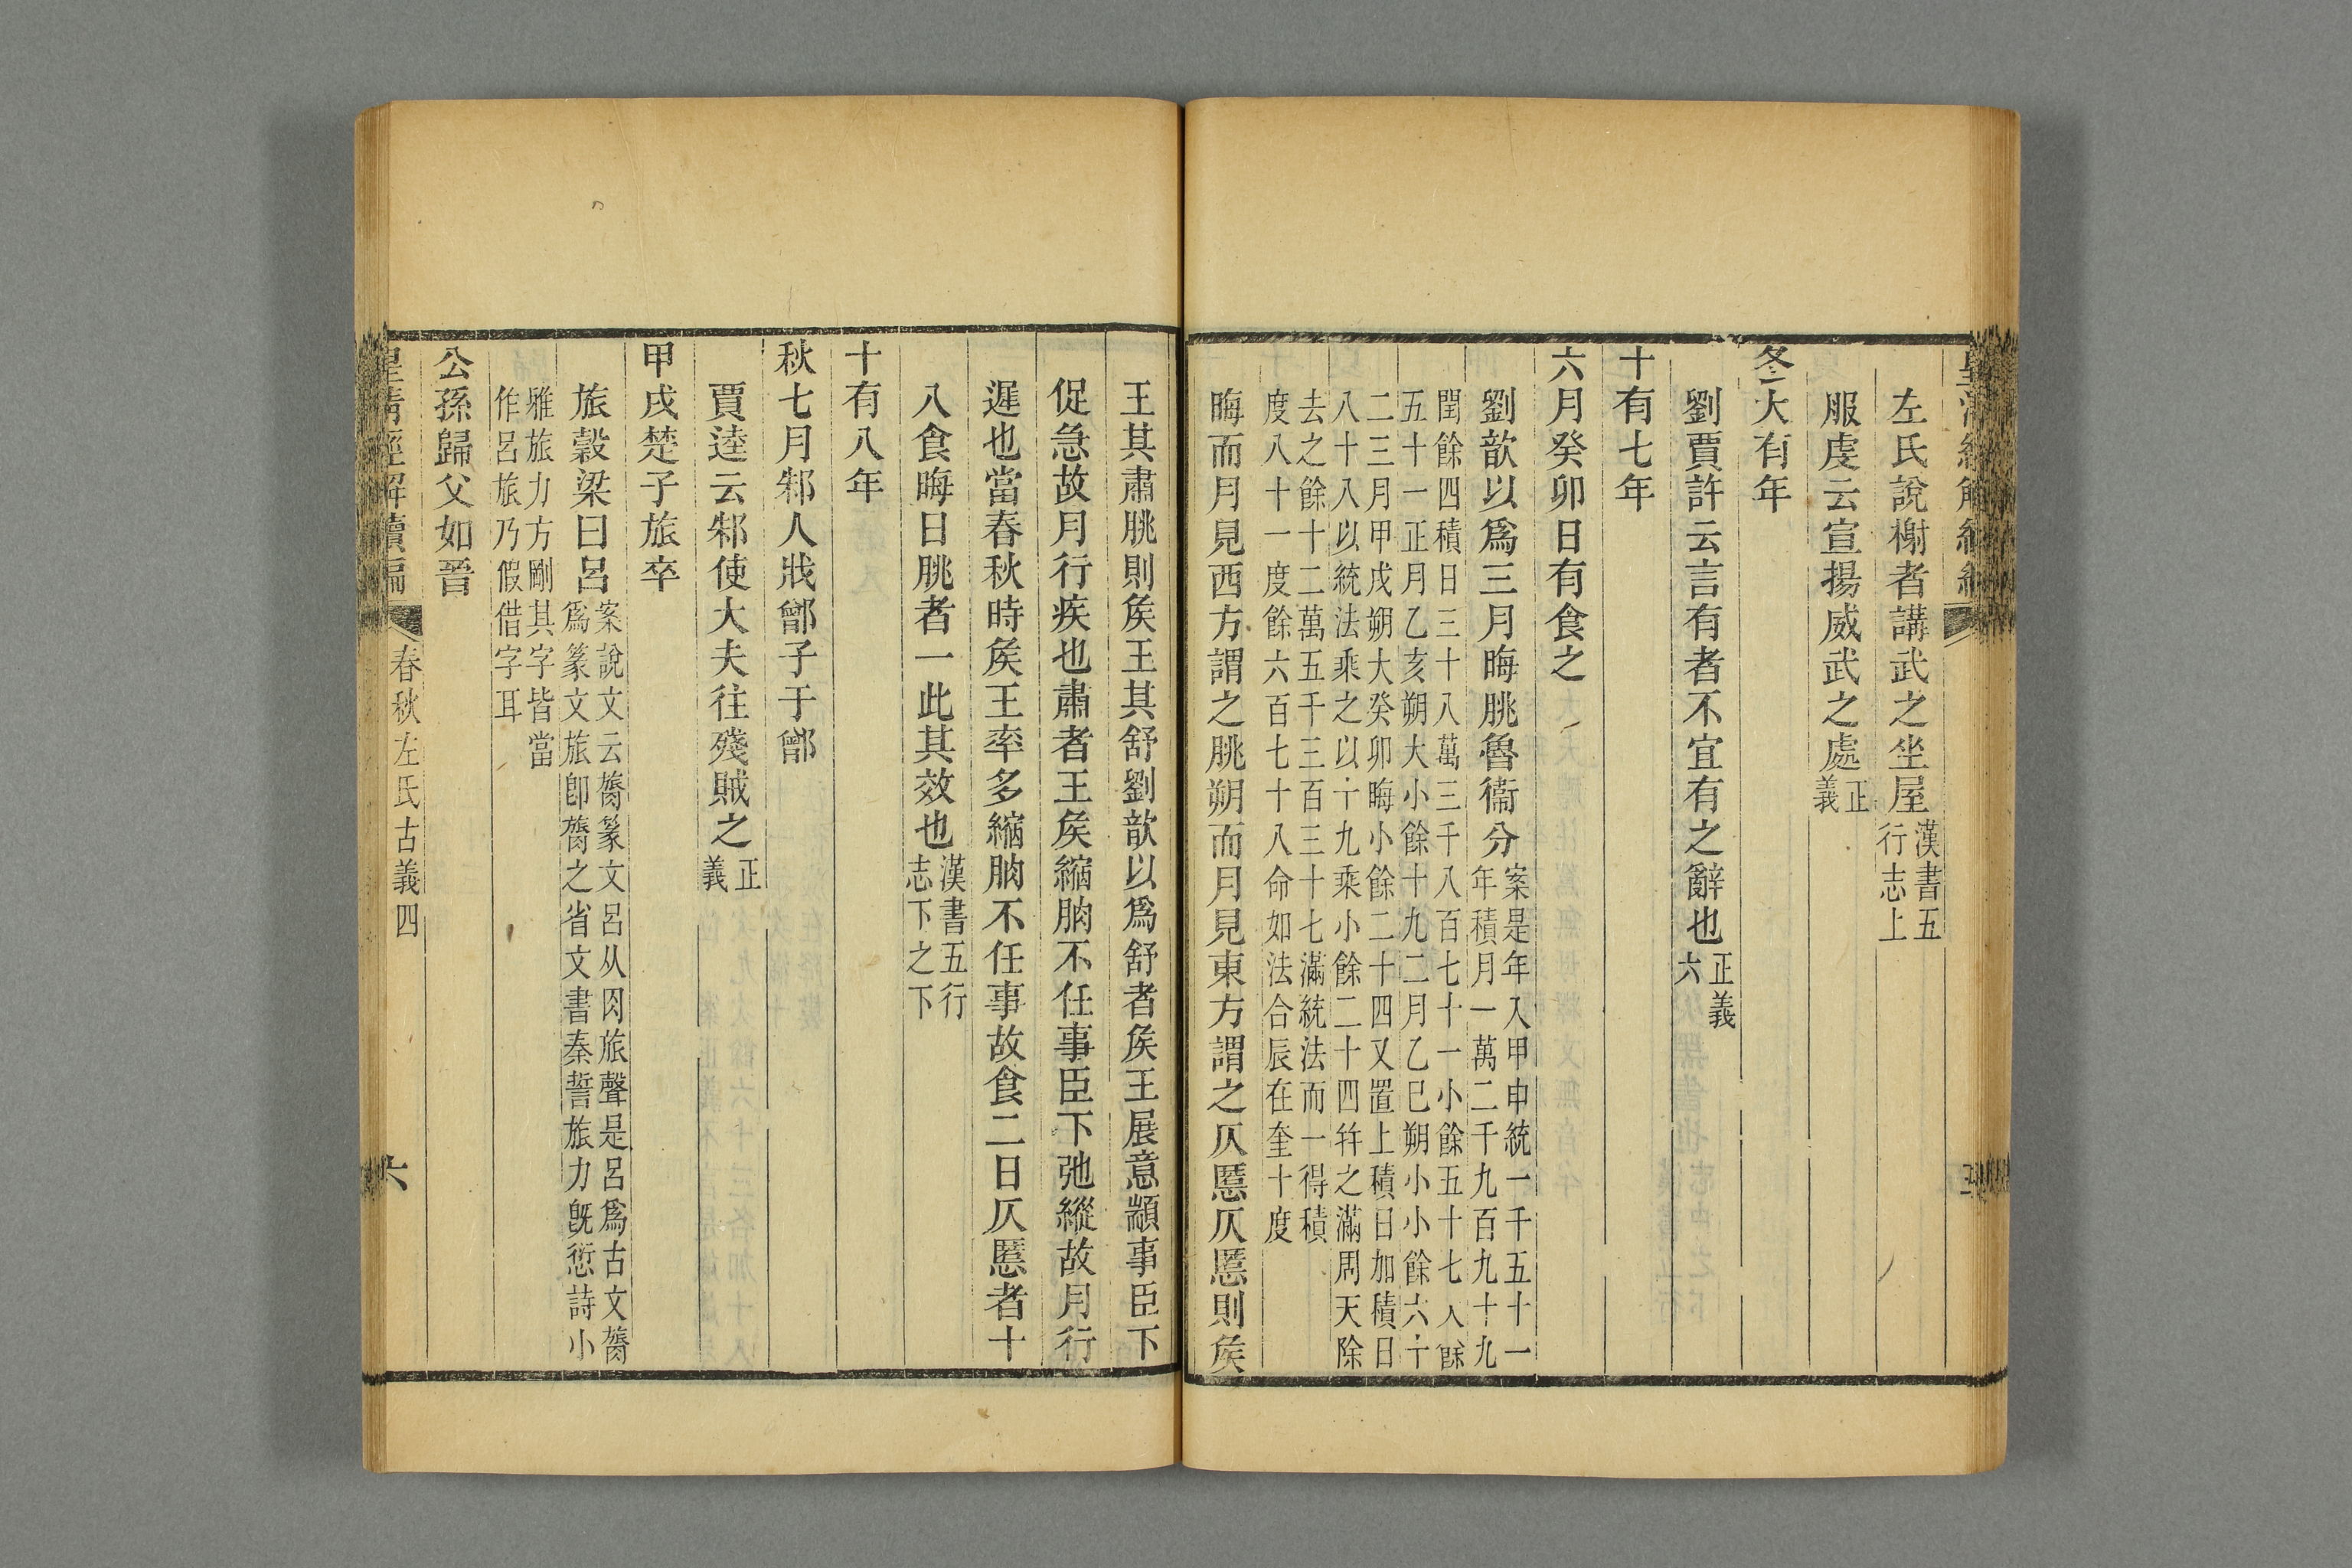 左氏說榭者講武之坐屋漢書五行志上
服虔云宣揚威武之處正義
冬大有年
劉賈許云言有者不宜有之辭也正義六
十有七年
六月癸卯日有食之
劉歆以爲三月晦朓魯衞分案是年入甲申統一千五十一年積月一萬二千九百九十九
閏餘四積日三十八萬三千八百七十一小餘五十七人餘五十一正月乙亥朔大小餘十九二月乙巳朔小小餘六十
二三月甲戌朔大癸卯晦小餘二十四又置上積日加積日八十八以統法乘之以十九乘小餘二十四幷之滿周天除
去之餘十二萬五千三百三十七滿統法而一得積度八十一度餘六百七十八命如法合辰在奎十度
晦而月見西方謂之朓朔而月見東方謂之仄慝仄慝則矦
王其肅朓則矦王其舒劉歆以爲舒者矦王展意顓事臣下
促急故月行疾也肅者王矦縮朒不任事臣下弛縱故月行
遲也當春秋時矦王率多縮朒不任事故食二日仄慝者十
八食晦日朓者一此其效也漢書五行志下之下
十有八年
秋七月邾人戕鄫子于鄫
賈逵云邾使大夫往殘賊之正義
甲戌楚子旅卒
旅穀梁曰呂案說文云膂篆文呂从肉旅聲是呂爲古文膂爲篆文旅卽膂之省文書秦誓旅力旣愆詩小
雅旅力方剛其字皆當作呂旅乃假借字耳
公孫歸父如晉
皇淸經解續編 春秋左氏古義四 六